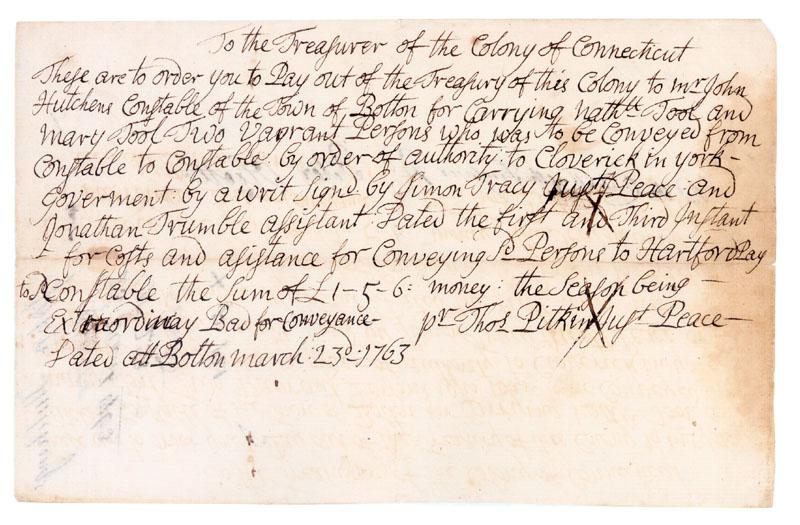 To the Treasurer of the Colony of Connecticut
These are to order you to Pay out of the Treasury of this Colony to mr John
Hutchens Constable of the Town of Bolton for Carrying nathll Tool and
mary Tool Two Vagrant Persons who was to be Conveyed from
Constable to Constable by order of authority: to Cloverick in york-
goverment: by a writ Signd by Simon Tracy Just Peace and
Jonathan Trumble assistant Dated the first and Third Instant
- for Costs and asistance for Conveying Sd Persons to Hartford Pay
to Sd Constable the Sum of £1-5-6: money: the Season being -
Extraordinay Bad for Conveyance- pr Thos Pitkin Just Peace -
Dated att Bolton march 23d 1763